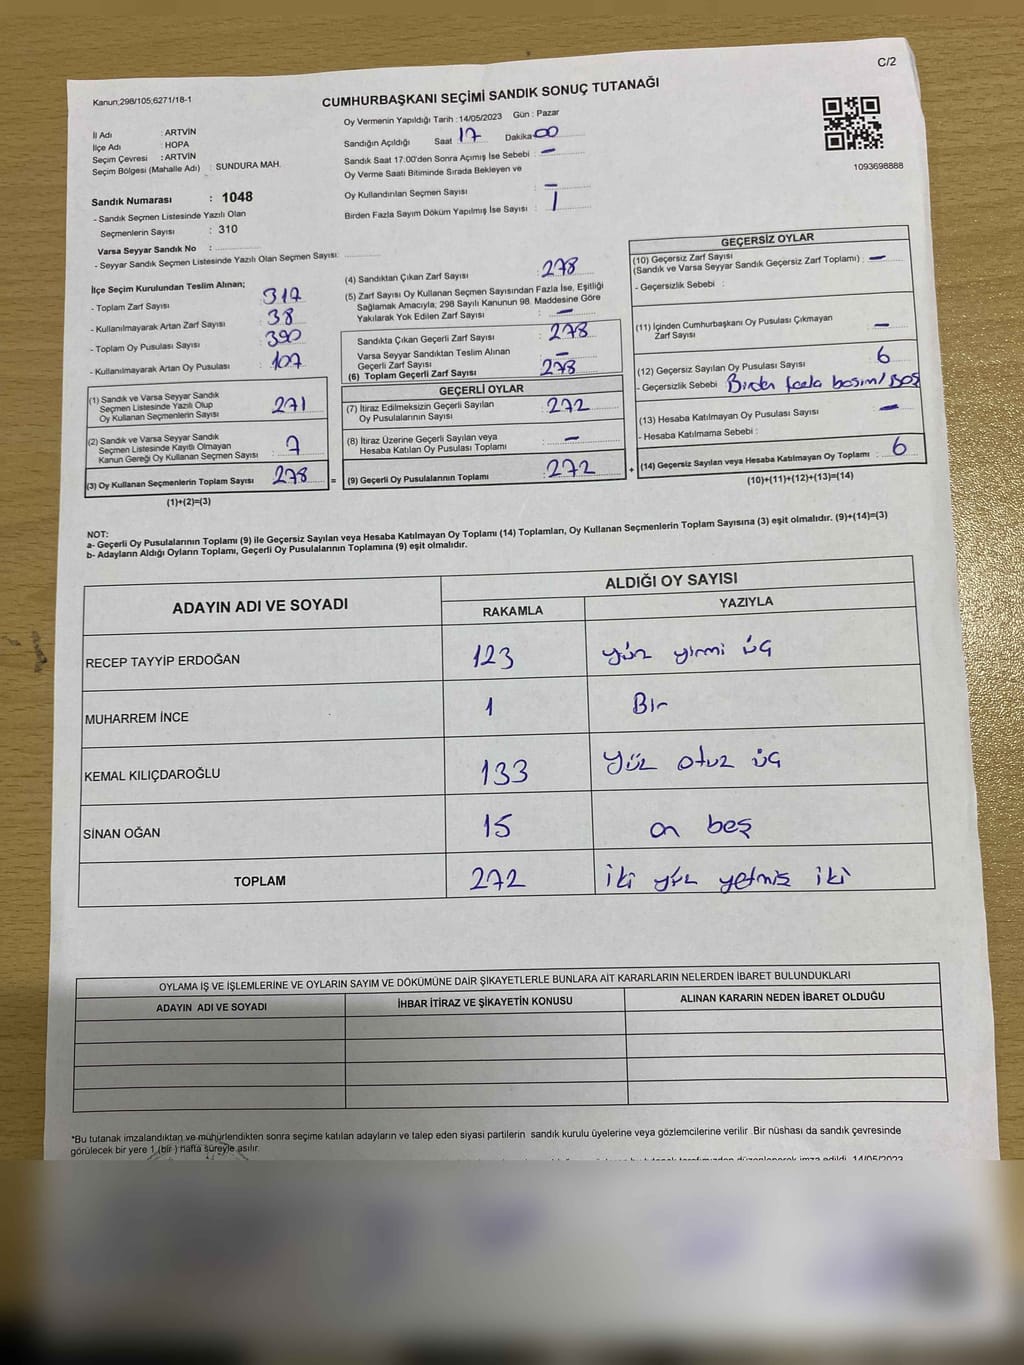 C/2
Kanun;298/105;6271/18-1
CUMHURBAŞKANI SEÇİMİ SANDIK SONUÇ TUTANAĞI
İl Adı : ARTVİN
İlçe Adı : HOPA
Seçim Çevresi : ARTVİN
Seçim Bölgesi (Mahalle Adı) : SUNDURA MAH.
Sandık Numarası : 1048
- Sandık Seçmen Listesinde Yazılı Olan
Seçmenlerin Sayısı : 310
Varsa Seyyar Sandık No :
- Seyyar Sandık Seçmen Listesinde Yazılı Olan Seçmen Sayısı:
Oy Vermenin Yapıldığı Tarih : 14/05/2023 Gün : Pazar
Sandığın Açıldığı Saat 17 Dakika 00
Sandık Saat 17:00'den Sonra Açımış İse Sebebi : –
Oy Verme Saati Bitiminde Sırada Bekleyen ve
Oy Kullandırılan Seçmen Sayısı : –
Birden Fazla Sayım Döküm Yapılmış İse Sayısı : 1
1093698888
İlçe Seçim Kurulundan Teslim Alınan;
- Toplam Zarf Sayısı : 317
- Kullanılmayarak Artan Zarf Sayısı : 38
- Toplam Oy Pusulası Sayısı : 390
- Kullanılmayarak Artan Oy Pusulası : 107
(1) Sandık ve Varsa Seyyar Sandık
Seçmen Listesinde Yazılı Olup
Oy Kullanan Seçmenlerin Sayısı : 271
(2) Sandık ve Varsa Seyyar Sandık
Seçmen Listesinde Kayıtlı Olmayan
Kanun Gereği Oy Kullanan Seçmen Sayısı : 7
(3) Oy Kullanan Seçmenlerin Toplam Sayısı : 278
(1)+(2)=(3)
(4) Sandıktan Çıkan Zarf Sayısı : 278
(5) Zarf Sayısı Oy Kullanan Seçmen Sayısından Fazla İse, Eşitliği
Sağlamak Amacıyla; 298 Sayılı Kanunun 98. Maddesine Göre
Yakılarak Yok Edilen Zarf Sayısı : –
Sandıkta Çıkan Geçerli Zarf Sayısı : 278
Varsa Seyyar Sandıktan Teslim Alınan
Geçerli Zarf Sayısı : –
(6) Toplam Geçerli Zarf Sayısı : 278
GEÇERLİ OYLAR
(7) İtiraz Edilmeksizin Geçerli Sayılan
Oy Pusulalarının Sayısı : 272
(8) İtiraz Üzerine Geçerli Sayılan veya
Hesaba Katılan Oy Pusulası Toplamı : –
= (9) Geçerli Oy Pusulalarının Toplamı : 272
GEÇERSİZ OYLAR
(10) Geçersiz Zarf Sayısı
(Sandık ve Varsa Seyyar Sandık Geçersiz Zarf Toplamı) : –
- Geçersizlik Sebebi :
(11) İçinden Cumhurbaşkanı Oy Pusulası Çıkmayan
Zarf Sayısı : –
(12) Geçersiz Sayılan Oy Pusulası Sayısı : 6
- Geçersizlik Sebebi : Birden fazla basım/Boş
(13) Hesaba Katılmayan Oy Pusulası Sayısı : –
- Hesaba Katılmama Sebebi :
+ (14) Geçersiz Sayılan veya Hesaba Katılmayan Oy Toplamı : 6
(10)+(11)+(12)+(13)=(14)
NOT:
a- Geçerli Oy Pusulalarının Toplamı (9) ile Geçersiz Sayılan veya Hesaba Katılmayan Oy Toplamı (14) Toplamları, Oy Kullanan Seçmenlerin Toplam Sayısına (3) eşit olmalıdır. (9)+(14)=(3)
b- Adayların Aldığı Oyların Toplamı, Geçerli Oy Pusulalarının Toplamına (9) eşit olmalıdır.
ADAYIN ADI VE SOYADI ALDIĞI OY SAYISI
RAKAMLA YAZIYLA
RECEP TAYYİP ERDOĞAN 123 yüz yirmi üç
MUHARREM İNCE 1 Bir
KEMAL KILIÇDAROĞLU 133 yüz otuz üç
SİNAN OĞAN 15 on beş
TOPLAM 272 iki yüz yetmiş iki
OYLAMA İŞ VE İŞLEMLERİNE VE OYLARIN SAYIM VE DÖKÜMÜNE DAİR ŞİKAYETLERLE BUNLARA AİT KARARLARIN NELERDEN İBARET BULUNDUKLARI
ADAYIN ADI VE SOYADI İHBAR İTİRAZ VE ŞİKAYETİN KONUSU ALINAN KARARIN NEDEN İBARET OLDUĞU
*Bu tutanak imzalandıktan ve mühürlendikten sonra seçime katılan adayların ve talep eden siyasi partilerin sandık kurulu üyelerine veya gözlemcilerine verilir .Bir nüshası da sandık çevresinde
görülecek bir yere 1 (bir ) hafta süreyle asılır.
tarafımızdan düzenlenerek imza edildi. 14/05/2023